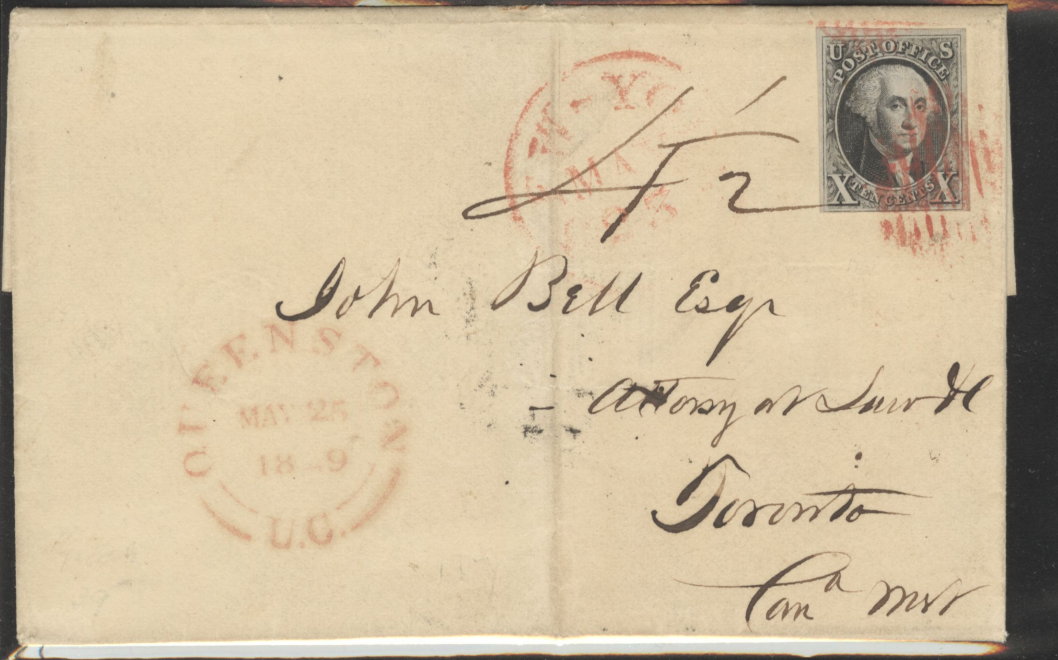 U S
POST OFFICE
X TEN CENTS X
NEW-YO
MAY
John Bell Esqr
Attorney at Law &c
Toronto
Cana West
QUEENSTON
MAY 25
18 9
U.C.